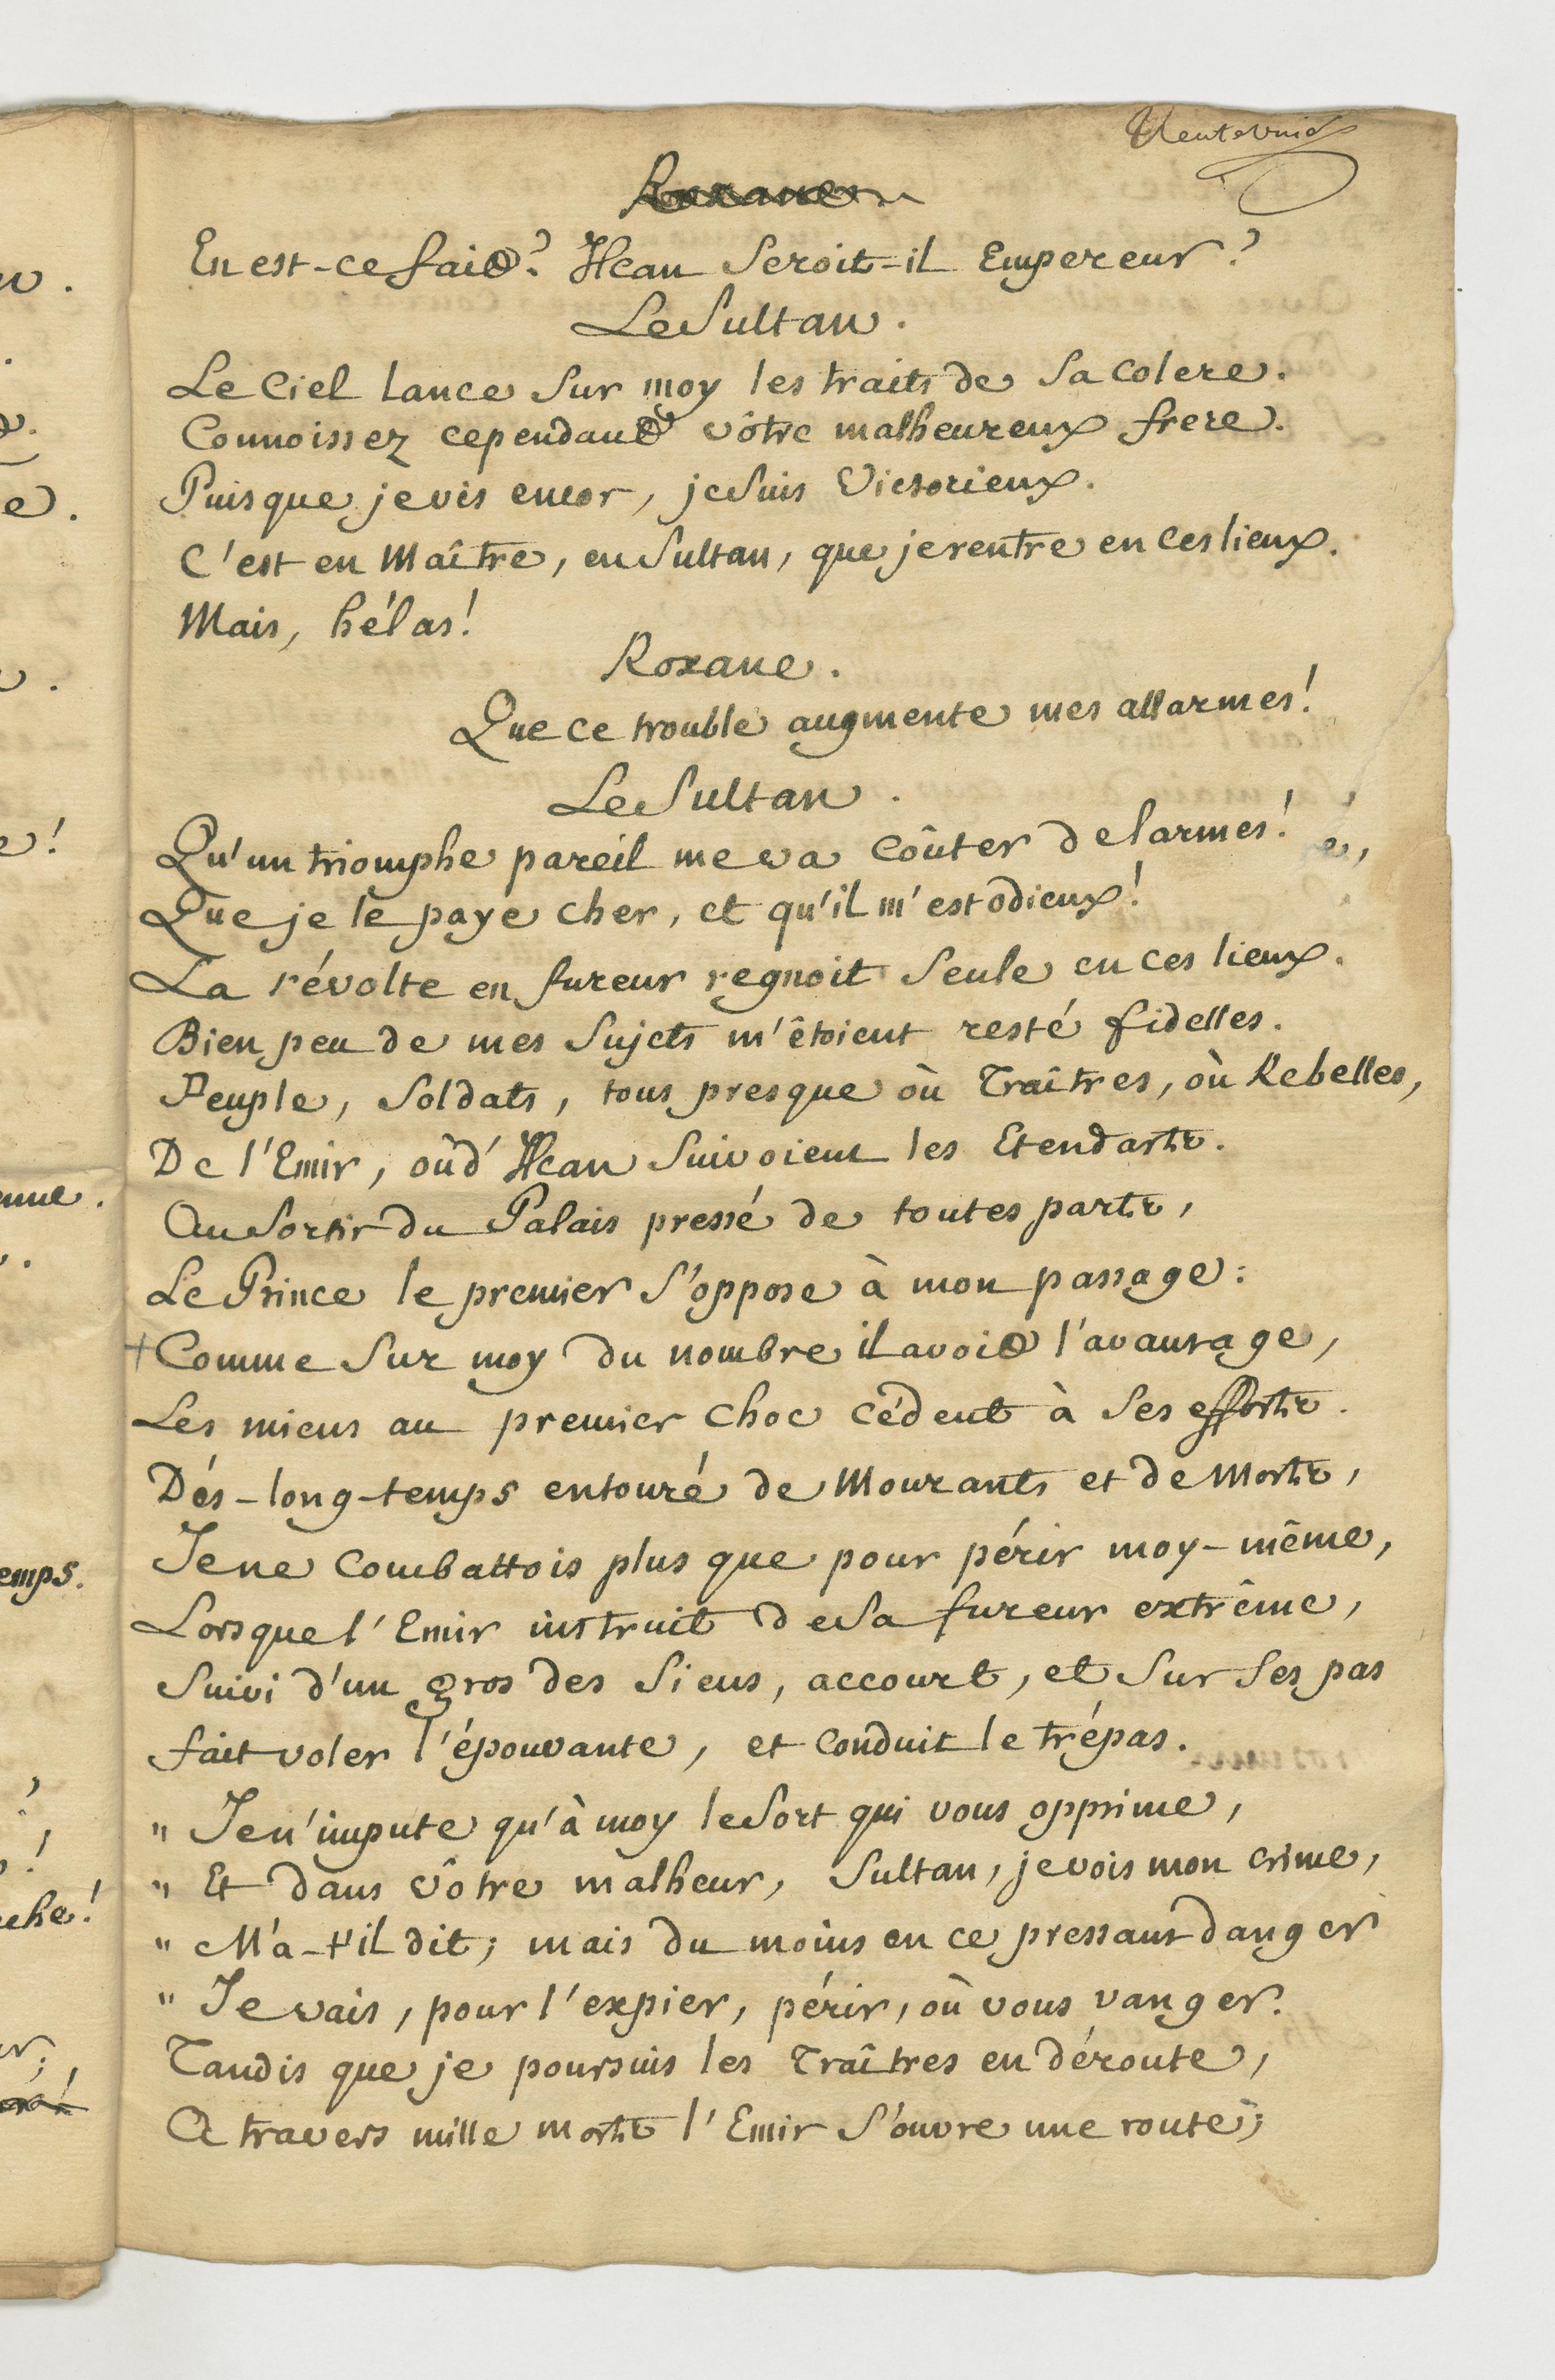 Roxane
En est-ce fait? Hcan Seroit-il Empereur?
Le Sultan.
Le Ciel lance Sur moy les traits de Sa colere.
Connoissez cependant vôtre malheureux frere.
Puisque je vis encor, je Suis Victorieux.
C'est en Maître, en Sultan, que je rentre en ces lieux.
Mais, hélas!
Roxane.
Que ce trouble augmente mes allarmes!
Le Sultan.
Qu'un triomphe pareil me va coûter de larmes!
Que je le paye cher, et qu'il m'est odieux!
La révolte en fureur regnoit Seule en ces lieux.
Bien peu de mes Sujets m'êtoient resté fidelles.
Peuple, Soldats, tous presque où Traîtres, où Rebelles,
De l'Emir, où d'Hcan Suivoient les Etendarts.
Au Sortir du Palais pressé de toutes parts,
Le Prince le premier S'oppose à mon passage:
+ Comme Sur moy du nombre il avoit l'avantage,
Les miens au premier choc cédent à Ses efforts.
Dés-long-temps entouré de Mourants et de Morts,
Je ne combattois plus que pour périr moy-même,
Lorsque l'Emir instruit de Sa fureur extrême,
Suivi d'un gros des Siens, accourt, et Sur Ses pas
fait voler l'épouvante, et conduit le trépas.
" Je n'impute qu'à moy le Sort qui vous opprime,
" Et dans vôtre malheur, Sultan, je vois mon crime,
" M'a-t'il dit; mais du moins en ce pressant danger
" Je vais, pour l'expier, périr, où vous vanger.
Tandis que je poursuis les Traîtres en déroute,
A travers mille morts l'Emir S'ouvre une route;